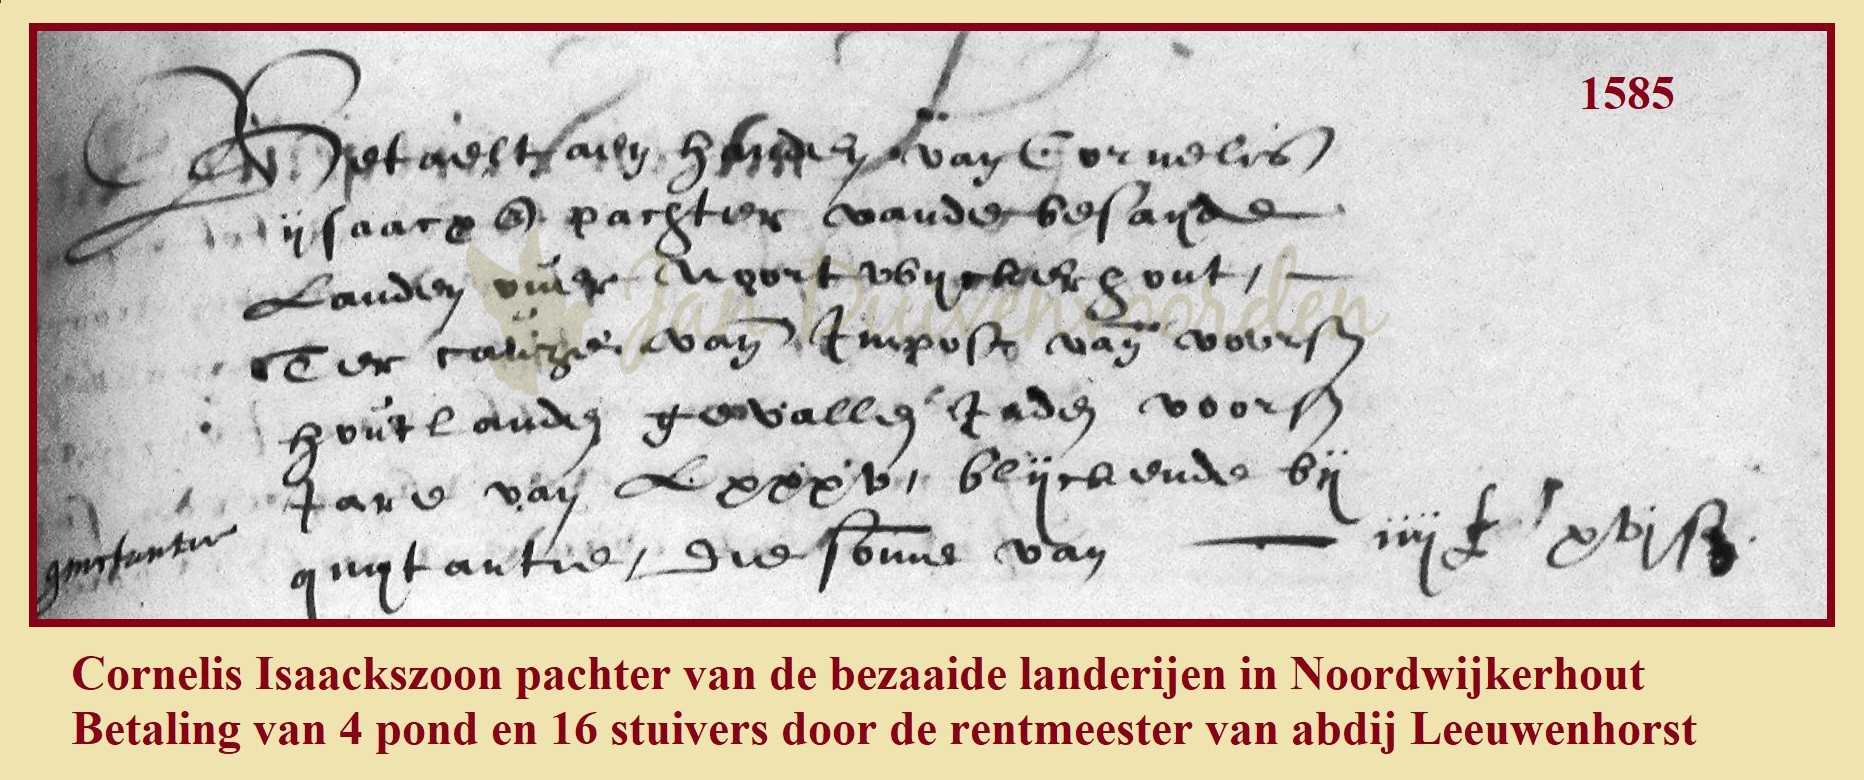 1585
Betaelt aen handen van Cornelis
ijsaacx pachter vande besayde
Landen over Noortwijckerhout,
Ter van Impost van voors
houtlanden gevallen Inden voors
Jare van Lxxxv, blijckende bij
quijtantie, die somme van iiij £ xvj s
quitantie
Jan Duivenvoorden
Cornelis Isaackszoon pachter van de bezaaide landerijen in Noordwijkerhout
Betaling van 4 pond en 16 stuivers door de rentmeester van abdij Leeuwenhorst